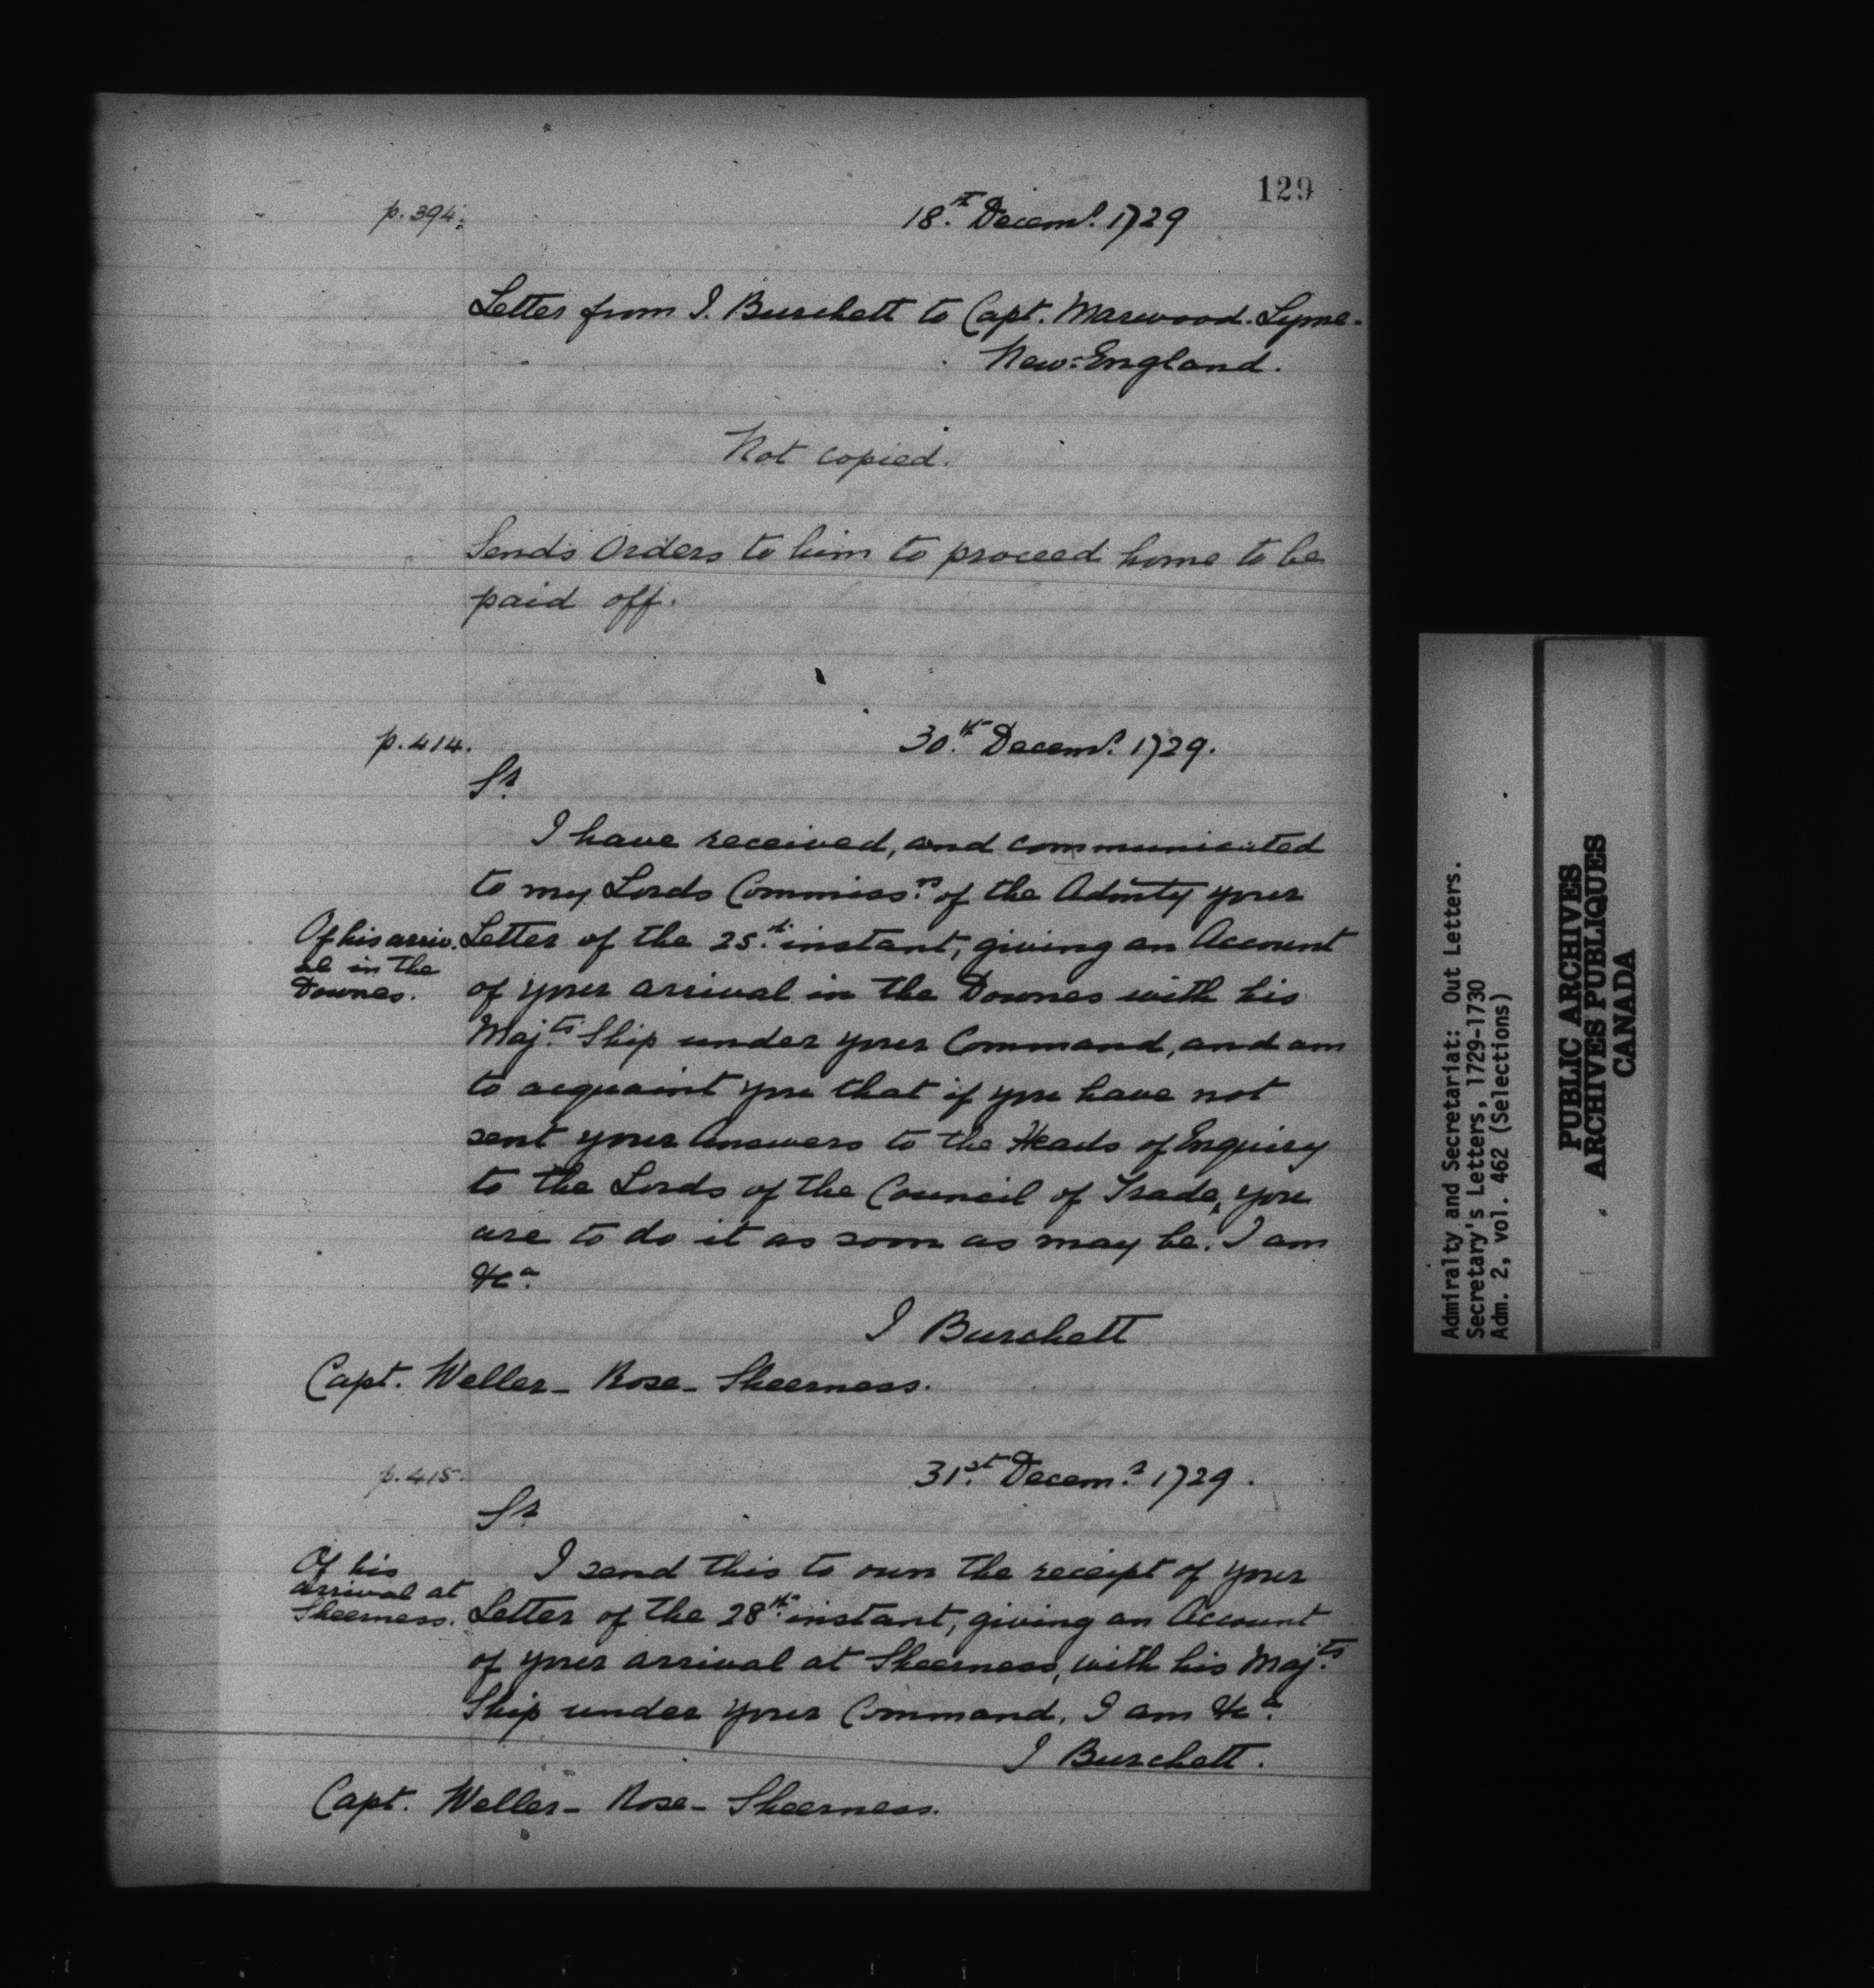 129
p. 394.
18.th Decemr. 1729
Letter from J. Burchett to Capt. Marwood. Lyme.
New=England.
Not copied.
Sends Orders to him to proceed home to be
paid off.
p. 414.
30.th Decemr. 1729.
Sr.
I have received, and communicated
to my Lords Commissrs. of the Admty your
Of his arriv-
al in the
Downes.
Letter of the 25.th instant, giving an Account
of your arrival in the Downes with his
Maj.ts Ship under your Command, and am
to acquaint you that if you have not
sent your Answers to the Heads of Enquiry
to the Lords of the Council of Trade, you
are to do it as soon as may be. I am
&ca.
J Burchett
Capt. Weller - Rose - Sheerness.
p. 415.
31.st Decemr. 1729.
Sr.
Of his
arrival at
Sheerness.
I send this to own the receipt of your
Letter of the 28th. instant, giving an Account
of your arrival at Sheerness, with his Maj.ts
Ship under your Command. I am &ca.
J Burchett.
Capt. Weller - Rose - Sheerness.
Admiralty and Secretariat: Out Letters.
Secretary's Letters, 1729-1730
Adm. 2, vol. 462 (Selections)
PUBLIC ARCHIVES
ARCHIVES PUBLIQUES
CANADA